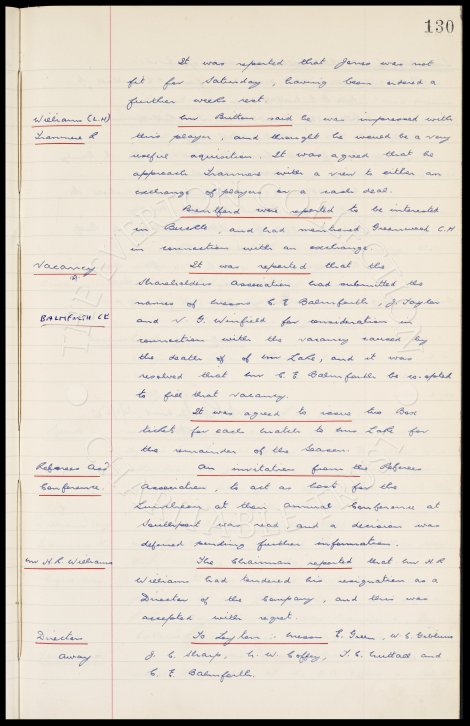 130
It was reported that Jones was not
fit for Saturday, having been ordered a
further weeks rest.
Williams (L.H) Mr Button said he was impressed with
Tranmere R this player, and thought he would be a very
useful aquisition. It was agreed that he
approach Tranmere with a view to either an
exchange of players or a cash deal.
Brentford were reported to be interested
in Buckle, and had mentioned Greenwood C.H
in connection with an exchange.
Vacancy It was reported that the
Shareholders Association had submitted the
names of Messrs C E Balmforth, J. Taylor
BALMFORTH CE and V. G. Winfield for consideration in
connection with the vacancy caused by
the death of of Mr Lake, and it was
resolved that Mr C. E Balmforth be co-opted
to fill that vacancy.
It was agreed to issue two Box
tickets for each match to Mrs Lake for
the remainder of the Season.
Referees Assd An invitation from the Referees
Conference. Association, to act as host for the
Luncheon at their annual Conference at
Southport was read and a decision was
deferred pending further information.
Mr H. R. Williams The Chairman reported that Mr H.R
Williams had tendered his resignation as a
Director of the Company, and this was
accepted with regret.
Directors To Leyton: Messrs E. Green, W. C. Gibbins
away J. C. Sharp, C. W. Coffey, T. C. Nuttall and
C. E. Balmforth.